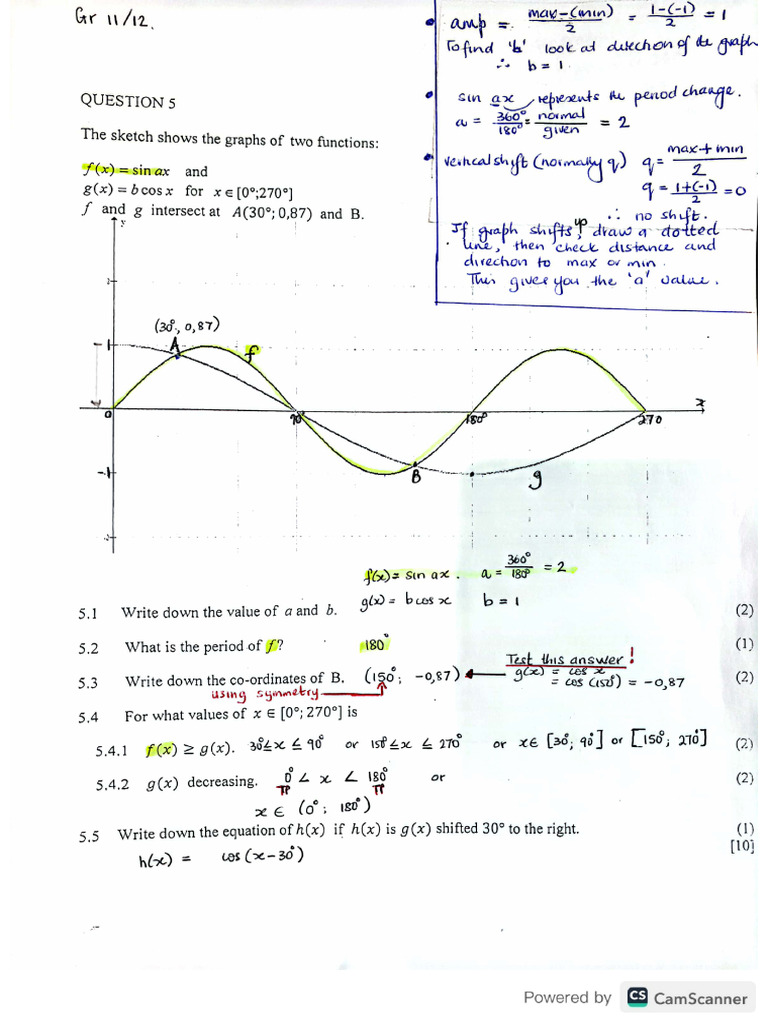 Gr 11/12.
• amp = max-(min)/2 = 1-(-1)/2 = 1
To find 'b' look at direction of the graph
∴ b = 1.
• sin ax, represents the period change.
a = 360°/180° = normal/given = 2
• vertical shift (normally q) q = max+min/2
q = 1+(-1)/2 = 0
∴ no shift.
If graph shifts up, draw a dotted
line, then check distance and
direction to max or min.
This gives you the 'a' value.
QUESTION 5
The sketch shows the graphs of two functions:
f(x) = sin ax and
g(x) = b cos x for x ∈ [0°;270°]
f and g intersect at A(30°; 0,87) and B.
y
2
(30°, 0,87)
1
A
f
0
90°
180°
270
x
-1
B
g
-2
f(x) = sin ax. a = 360°/180° = 2
g(x) = b cos x b = 1
5.1 Write down the value of a and b. (2)
5.2 What is the period of f? 180° (1)
Test this answer!
5.3 Write down the co-ordinates of B. (150°; -0,87) g(x) = cos x (2)
= cos (150°) = -0,87
using symmetry
5.4 For what values of x ∈ [0°; 270°] is
5.4.1 f(x) ≥ g(x). 30° ≤ x ≤ 90° or 150° ≤ x ≤ 270° or x ∈ [30°; 90°] or [150°; 270°] (2)
5.4.2 g(x) decreasing. 0° < x < 180° or (2)
x ∈ (0°; 180°)
5.5 Write down the equation of h(x) if h(x) is g(x) shifted 30° to the right. (1)
[10]
h(x) = cos (x-30°)
Powered by CS CamScanner